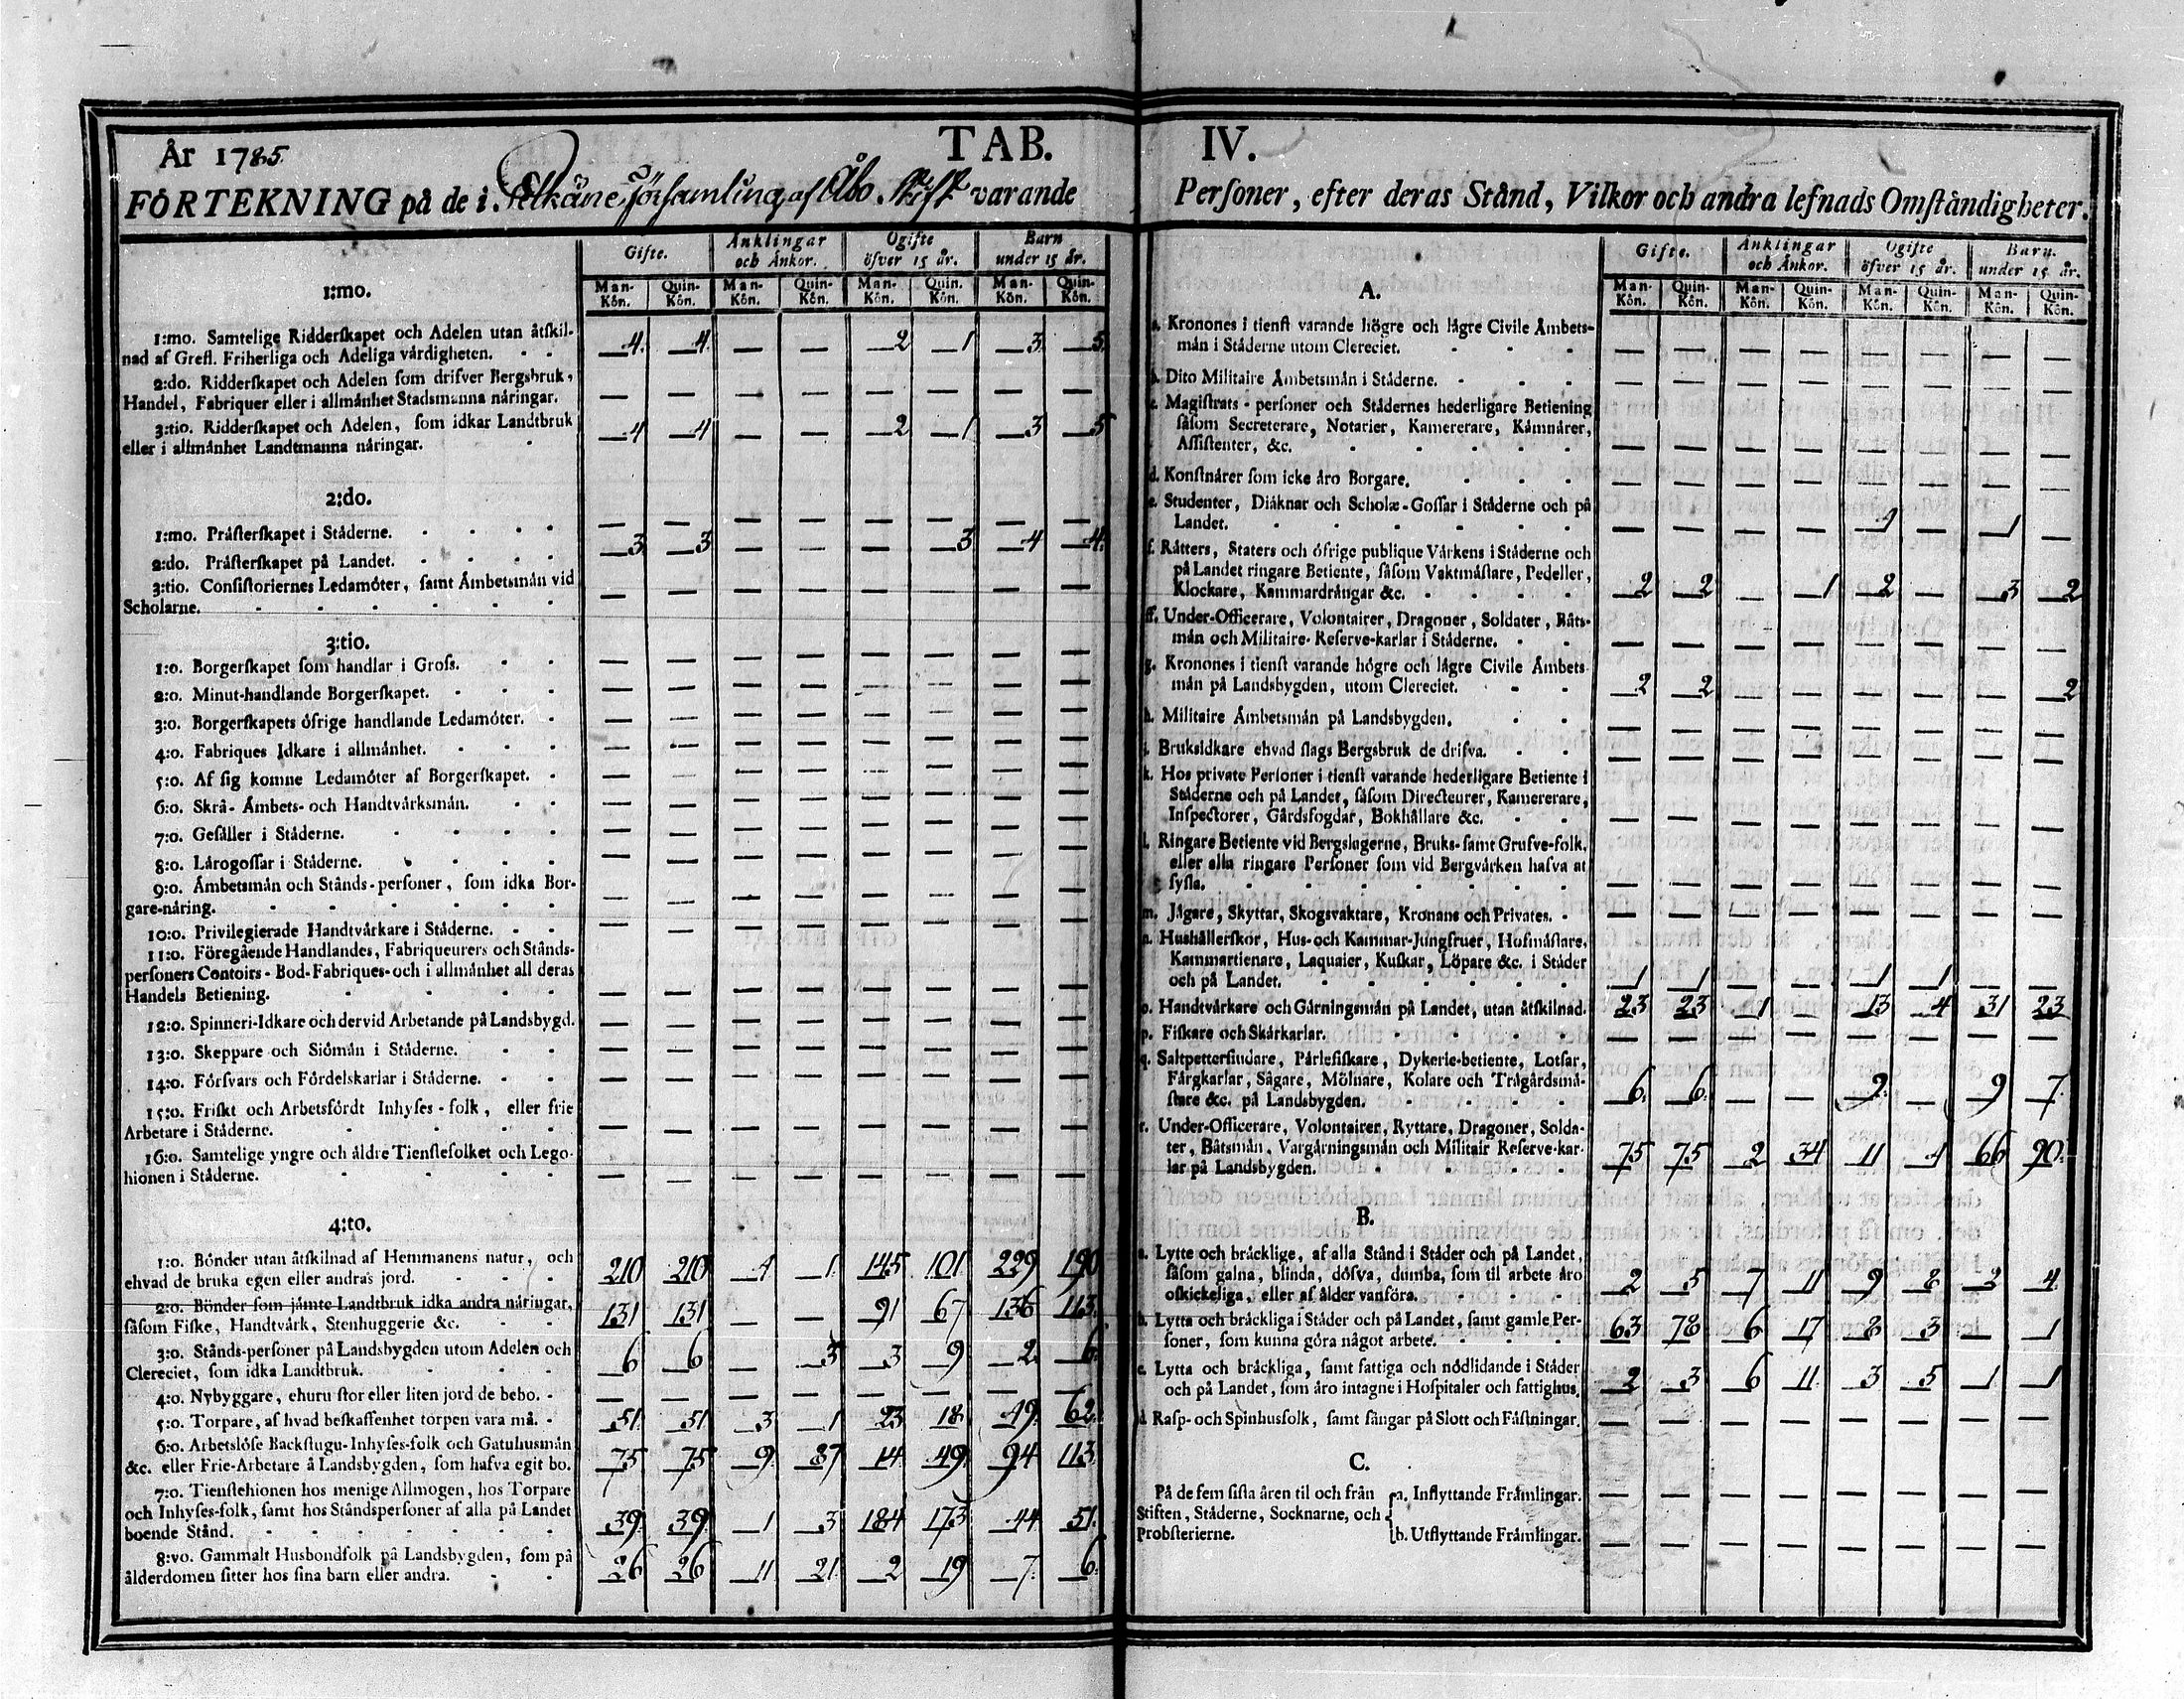 År 1785
TAB. IV.
FÖRTEKNING på de i Församling af Åbo Stift varande Personer, efter deras Stånd, Vilkor och andra lefnads Omständigheter.
Gifte. Änklingar och Änkor. Ogifte öfver 15 år. Barn under 15 år.
Man-Kön. Quin-Kön. Man-Kön. Quin-Kön. Man-Kön. Quin-Kön. Man-Kön. Quin-Kön.
1:mo.
1:mo. Samtelige Ridderskapet och Adelen utan åtskil-
nad af Grefl. Friherliga och Adeliga värdigheten. 4. 4. — — 2 1 3. 5.
2:do. Ridderskapet och Adelen som drifver Bergsbruk,
Handel, Fabriquer eller i allmänhet Stadsmanna näringar. — — — — — — — —
3:tio. Ridderskapet och Adelen, som idkar Landtbruk 4 4 — — 2 1 3 5
eller i allmänhet Landtmanna näringar.
2:do.
1:mo. Prästerskapet i Städerne. — — — — — — — —
2:do. Prästerskapet på Landet. 3 3 — — — 3 4 4.
3:tio. Consistoriernes Ledamöter, samt Ämbetsmän vid
Scholarne. — — — — — — — —
3:tio.
1:o. Borgerskapet som handlar i Gross. — — — — — — — —
2:o. Minut-handlande Borgerskapet. — — — — — — — —
3:o. Borgerskapets öfrige handlande Ledamöter. — — — — — — — —
4:o. Fabriques Idkare i allmänhet. — — — — — — — —
5:o. Af sig komne Ledamöter af Borgerskapet. — — — — — — — —
6:o. Skrå- Ämbets- och Handtvärksmän. — — — — — — — —
7:o. Gesäller i Städerne. — — — — — — — —
8:o. Lärogossar i Städerne. — — — — — — — —
9:o. Ämbetsmän och Stånds-personer, som idka Bor-
gare-näring. — — — — — — — —
10:o. Privilegierade Handtvärkare i Städerne. — — — — — — — —
11:o. Föregående Handlandes, Fabriqueurers och Stånds-
personers Contoirs - Bod-Fabriques-och i allmänhet all deras
Handels Betiening. — — — — — — — —
12:o. Spinneri-Idkare och dervid Arbetande på Landsbygd. — — — — — — — —
13:o. Skeppare och Siömän i Städerne. — — — — — — — —
14:o. Försvars och Fördelskarlar i Städerne. — — — — — — — —
15:o. Friskt och Arbetsfördt Inhyses-folk, eller frie
Arbetare i Städerne. — — — — — — — —
16:o. Samtelige yngre och äldre Tienstefolket och Lego-
hionen i Städerne. — — — — — — — —
4:to.
1:o. Bönder utan åtskilnad af Hemmanens natur, och
ehvad de bruka egen eller andras jord. 210 210 1 1 145 101 229 190
2:o. Bönder som jämte Landtbruk idka andra näringar,
såsom Fiske, Handtvärk, Stenhuggerie &c. 131 131 — — 91 67 136 113.
3:o. Stånds-personer på Landsbygden utom Adelen och
Clereciet, som idka Landtbruk. 6 6 — 3 3 9 2. 6.
4:o. Nybyggare, ehuru stor eller liten jord de bebo. — — — — — — — —
5:o. Torpare, af hvad beskaffenhet torpen vara må. 51. 51 3 1 23 18 49. 62.
6:o. Arbetslöse Backstugu-Inhyses-folk och Gatuhusmän
&c. eller Frie-Arbetare å Landsbygden, som hafva egit bo. 75 75 9. 87 14 49. 94 113
7:o. Tienstehionen hos menige Allmogen, hos Torpare
och Inhyses-folk, samt hos Ståndspersoner af alla på Landet
boende Stånd. 39. 39. 1 3 184 173 44 51.
8:vo. Gammalt Husbondfolk på Landsbygden, som på
ålderdomen sitter hos sina barn eller andra. 26 26 11 21. 2 19 7. 6.
Gifte. Änklingar och Änkor. Ogifte öfver 15 år. Barn. under 15 år.
Man-Kön. Quin-Kön. Man-Kön. Quin-Kön. Man-Kön. Quin-Kön. Man-Kön. Quin-Kön.
A.
a. Kronones i tienst varande högre och lägre Civile Ämbets-
män i Städerne utom Clereciet. — — — — — — — —
b. Dito Militaire Ämbetsmän i Städerne. — — — — — — — —
c. Magistrats-personer och Städernes hederligare Betiening
såsom Secreterare, Notarier, Kamererare, Kämnärer,
Assistenter, &c. — — — — — — — —
d. Konstnärer som icke äro Borgare. — — — — — — — —
e. Studenter, Diäknar och Scholæ-Gossar i Städerne och på
Landet. — — — — 1 — 1 —
f. Rätters, Staters och öfrige publique Värkens i Städerne och
på Landet ringare Betiente, såsom Vaktmästare, Pedeller,
Klockare, Kammardrängar &c. 2 2 — 1 2 — 3 2
ff. Under-Officerare, Volontairer, Dragoner, Soldater, Båts-
män och Militaire-Reserve-karlar i Städerne. — — — — — — — —
g. Kronones i tienst varande högre och lägre Civile Ämbets-
män på Landsbygden, utom Clereciet. 2 2 — — — — — 2
h. Militaire Ämbetsmän på Landsbygden. — — — — — — — —
i. Bruksidkare ehvad slags Bergsbruk de drifva. — — — — — — — —
k. Hos private Personer i tienst varande hederligare Betiente i
Städerne och på Landet, såsom Directeurer, Kamererare,
Inspectorer, Gårdsfogdar, Bokhållare &c. — — — — — — — —
l. Ringare Betiente vid Bergslagerne, Bruks-samt Grufve-folk,
eller alla ringare Personer som vid Bergvärken hafva at
sysla. — — — — — — — —
m. Jägare, Skyttar, Skogsvaktare, Kronans och Privates. — — — — — — — —
n. Hushållerskor, Hus-och Kammar-Jungfruer, Hofmästare,
Kammartienare, Laquaier, Kuskar, Löpare &c. i Städer
och på Landet. 1 1 — — 1 1 — —
o. Handtvärkare och Gärningsmän på Landet, utan åtskilnad. 23 23 1 — 13 4 31 23
p. Fiskare och Skärkarlar. — — — — — — — —
q. Saltpettersiudare, Pärlefiskare, Dykerie-betiente, Lotsar,
Färgkarlar, Sågare, Mölnare, Kolare och Trägårdsmä-
stare &c. på Landsbygden. 6. 6. — — 2. — 9 7.
r. Under-Officerare, Volontairer, Ryttare, Dragoner, Solda-
ter, Båtsmän, Vargärningsmän och Militair Reserve-kar-
lar på Landsbygden. 75 75 2 34 11 1 66 90.
B.
a. Lytte och bräcklige, af alla Stånd i Städer och på Landet,
såsom galna, blinda, döfva, dumba, som til arbete äro
oskickeliga, eller af ålder vanföra. 2 5 7 11 9 8 2 4
b. Lytta och bräckliga i Städer och på Landet, samt gamle Per-
soner, som kunna göra något arbete. 63 78 6 17 8 3 — 1
c. Lytta och bräckliga, samt fattiga och nödlidande i Städer
och på Landet, som äro intagne i Hospitaler och fattighus. 2 3 6 11 3 5 1 1
d. Rasp-och Spinhusfolk, samt fångar på Slott och Fästningar. — — — — — — — —
C.
På de fem sista åren til och från
Stiften, Städerne, Socknarne, och
Probsterierne.
a. Inflyttande Främlingar. — — — — — — — —
b. Utflyttande Främlingar. — — — — — — — —